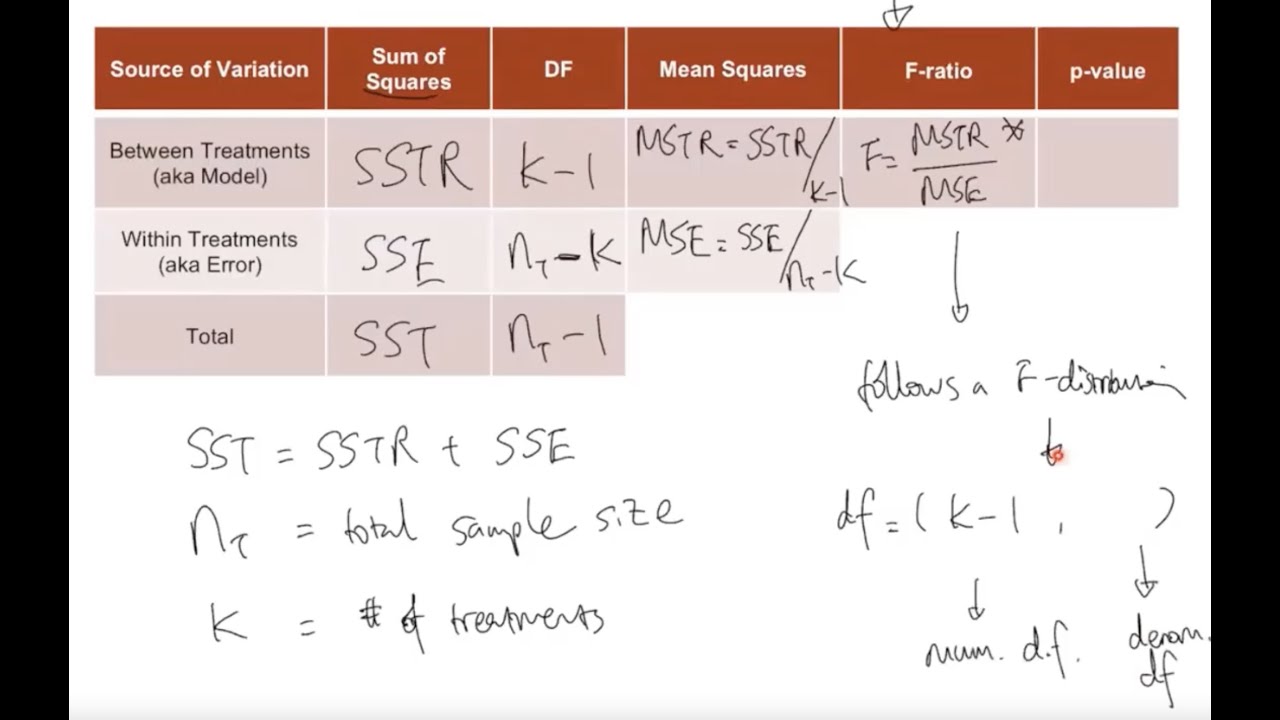 Source of Variation Sum of Squares DF Mean Squares F-ratio p-value
Between Treatments (aka Model) SSTR K-1 MSTR = SSTR/K-1 F = MSTR/MSE *
Within Treatments (aka Error) SSE n_T-K MSE = SSE/n_T-K
Total SST n_T-1
follows a F-distribution
SST = SSTR + SSE
n_T = total sample size
df = (K-1, )
K = # of treatments
num. d.f.
denom. df